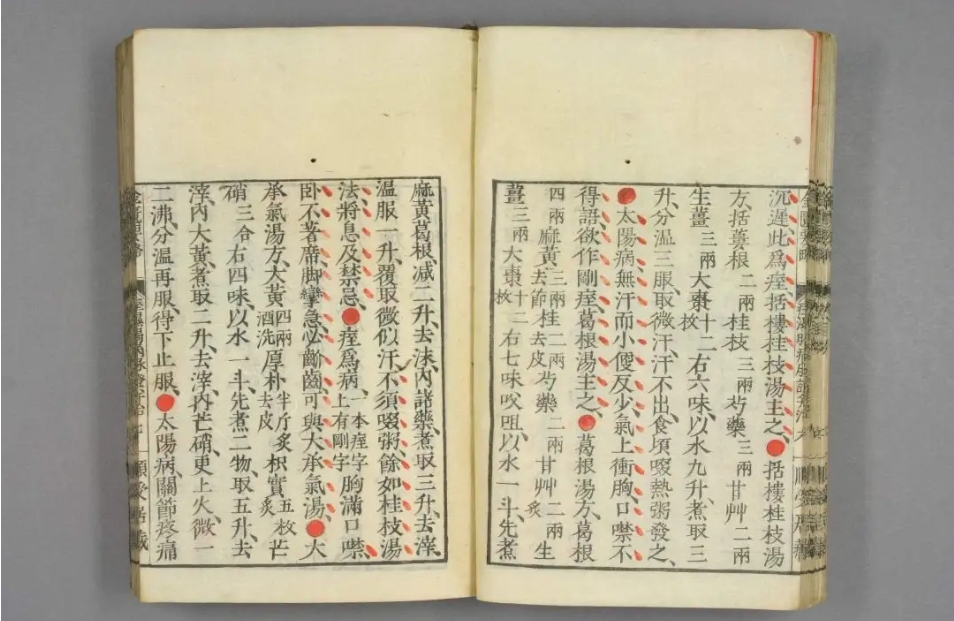 沉遲此爲痓括樓桂枝湯主之括樓桂枝湯
方括蔞根二兩桂枝三兩芍藥三兩甘艸二兩
生薑三兩大棗十二枚右六味以水九升煮取三
升分溫三服取微汗汗不出食頃啜熱粥發之
太陽病無汗而小便反少氣上衝胸口噤不
得語欲作剛痓葛根湯主之葛根湯方葛根
四兩麻黃三兩去節桂二兩去皮芍藥二兩甘艸二兩炙生
薑三兩大棗十二枚右七味㕮咀以水一斗先煮
麻黃葛根減二升去沫內諸藥煮取三升去滓
溫服一升覆取微似汗不須啜粥餘如桂枝湯
法將息及禁忌痓爲病一本痓字上有剛字胸滿口噤
卧不著席脚攣急必齘齒可與大承氣湯大
承氣湯方大黃四兩酒洗厚朴半斤炙去皮枳實五枚炙芒
硝三合右四味以水一斗先煮二物取五升去
滓內大黃煮取二升去滓內芒硝更上火微一
二沸分溫再服待下止服太陽病關節疼痛